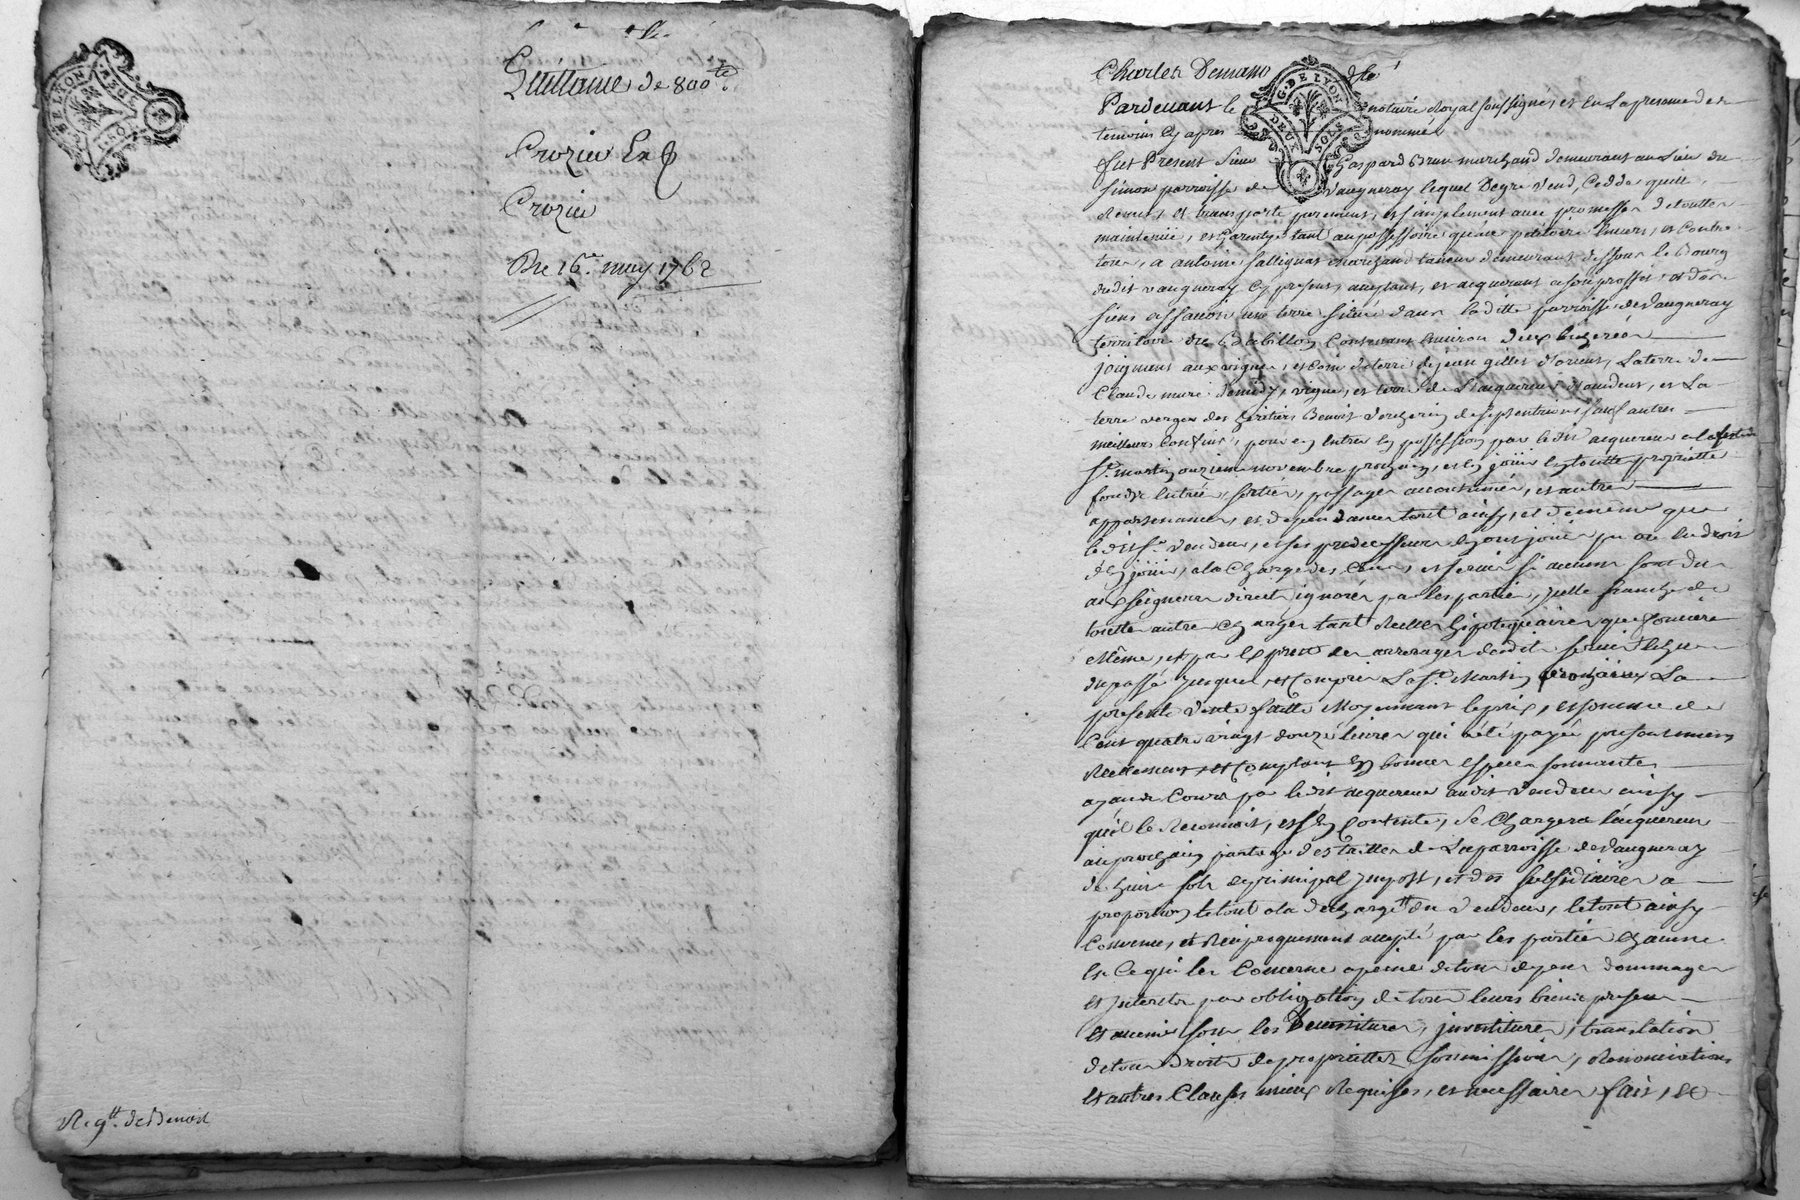 Guillaume de 800 ₶
Crozier
Crozier
Du 16e may 1762
Reqtt de Benoist
G. DE LYON
DEUX SOLS
Charles
Pardevant le notaire Royal soussigné, et en la presence des
temoins cy apres nommés
fut Present Sieur Gaspard Brun marchand demeurant au lieu du
Simon parroisse de Vaugneray lequel Degre vend, Cedde quitte,
Remet, et transporte purement, et simplement avec promesse de toutte
maintenüe, et Garentye tant au possessoire qu'au petitoire Envers, et Contre
tous, a antoine marchand taneur demeurant dessous le Bourg
dudit vaugneray Cy present, aceptant, et acquerant a son proffit et des
siens assavoir une terre Située dans laditte parroisse de Vaugneray
territoire du Contenant Environ deux bicherées
joignant aux vignes, et Coin de terre de jean gilles d'orient, La terre de
Claude mure de midy, vigne, et terre de L'acquereur d'occident, et La
terre verger des heritiers Benoit de septentrion sauf autres
meilleurs Confins, pour en Entrer En possession par ledit acquereur a la feste
St. martin onzieme novembre prochain, et en joüir En toutte proprietté
fonds, Entrées, sorties, passages accoutumés, et autres
appartenances, et dependances tout ainsy, et de même que
ledit Sr. Vendeur, et ses predecesseurs En ont joüi, pu ou En droit
d'En joüir, a la Charge des Cens, et servis si aucuns sont dus
aux seigneurs directs ignorés par les parties, quitte franche de
toutte autres Charges tant Reelles hipotequaires que fonciere
Même, et par Exprès des arrerages desdits servis Echus
du passé jusques, et Compris La St. Martin prochaine La
presente Vente faitte Moyennant le prix, et somme de
Cent quatre vingt douze livres qui a été payée presentement
Reellement, et Comptant En bonnes Especes sonnantes
ayant Cours par ledit acquereur audit Vendeur ainsy
qu'il le Reconnoit, et s'En Contente, Se Chargera l'acquereur
au prochain partage des tailles de La parroisse de Vaugneray
de huit sols de principal Impost, et des subsidiaires a
proportion le tout a la decharge du Vendeur, le tout ainsy
Convenu, et Reciproquement accepté par les parties Chacune
En Ce qui les Concerne a peine de tous depens dommages
et Interets par obligation de tous leurs biens presens
Et avenir sous les devestitures, investitures, translation
de tous droits de proprietté soumissions, Renonciations
Et autres Clauses mieux Requises, et necessaires fait, et